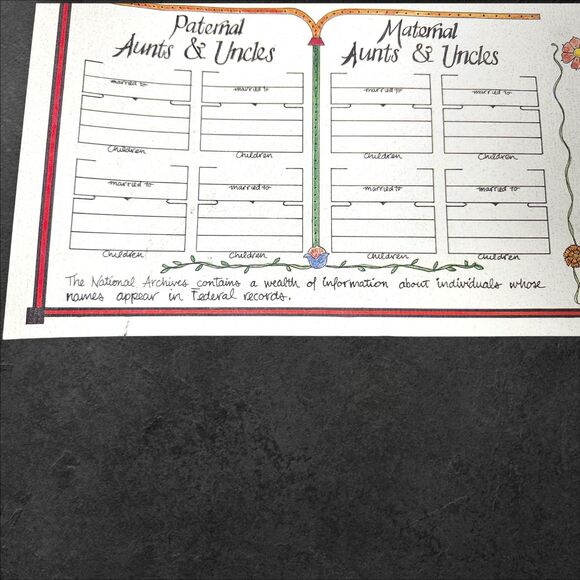 Paternal
Aunts & Uncles
Maternal
Aunts & Uncles
married to
married to
married to
married to
Children
Children
Children
Children
married to
married to
married to
married to
Children
Children
Children
Children
The National Archives contains a wealth of information about individuals whose
names appear in Federal records.